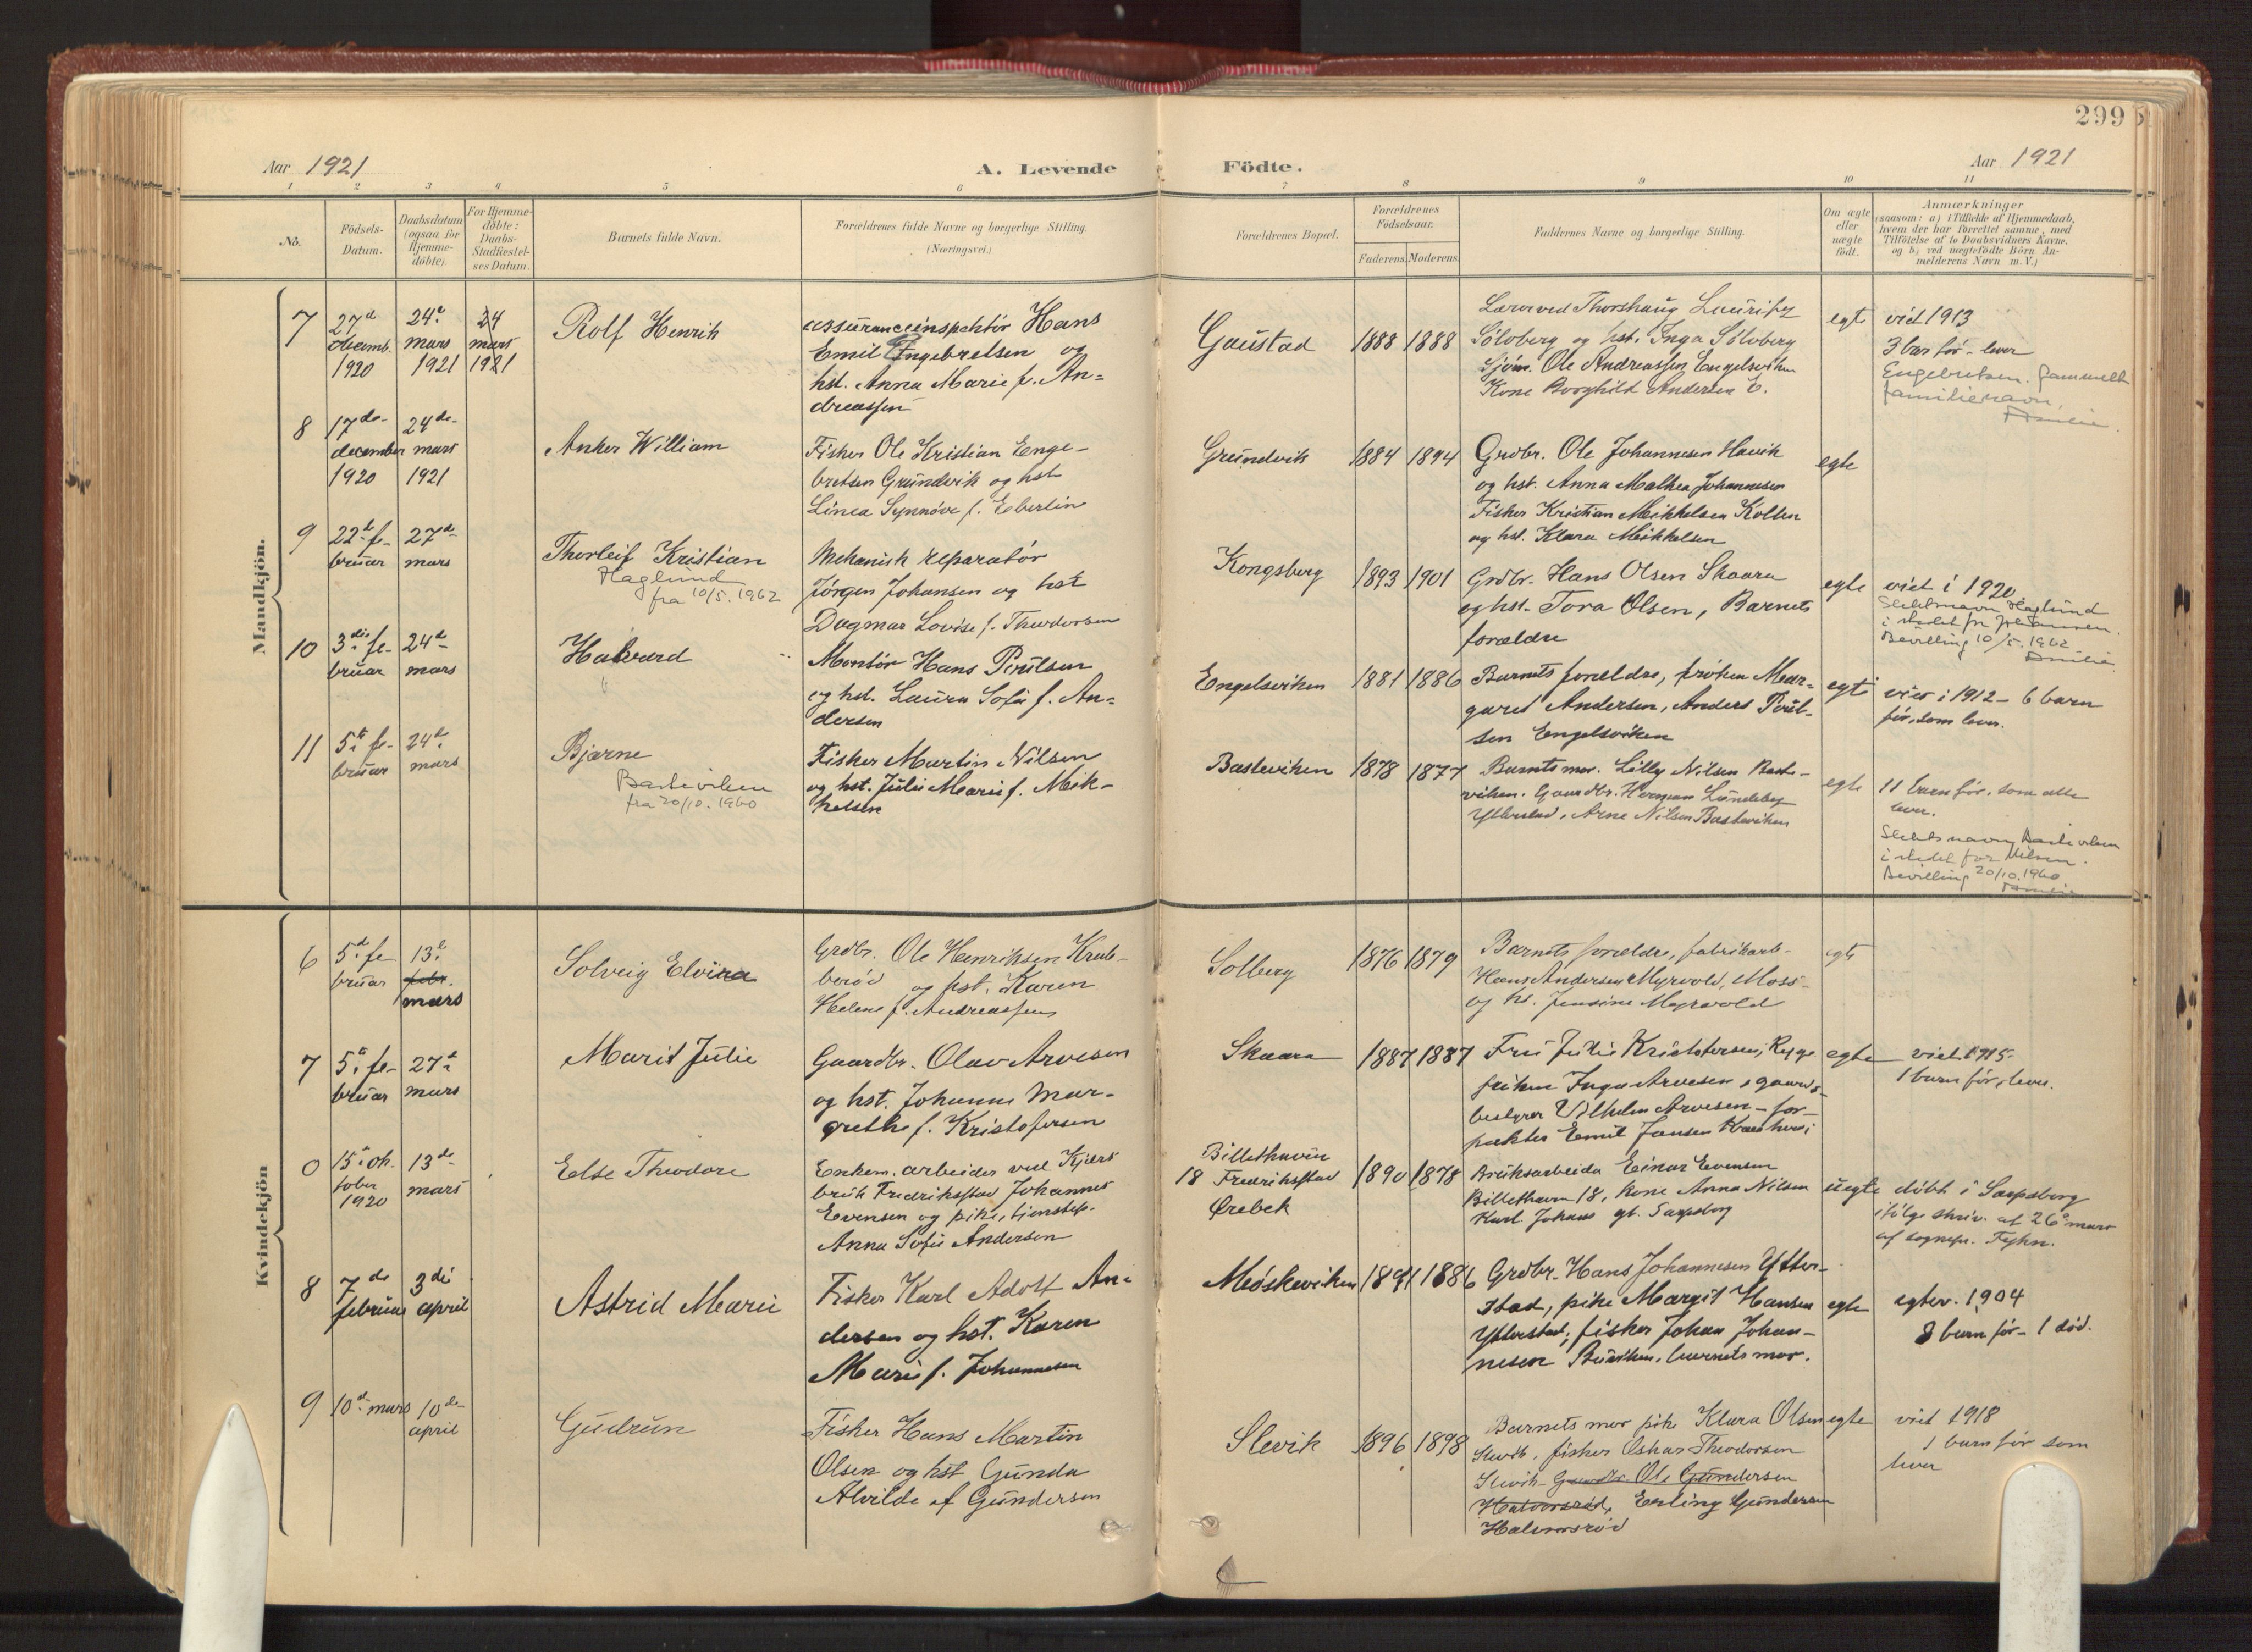 299
Aar 1921
A. Levende
Födte.
Aar 1921
1 2 3 4 5 6 7 8 9 10 11
No.
Födsels-
Datum.
Daabsdatum
(ogsaa for
Hjemme-
döbte).
For Hjemme-
döbte:
Daabs-
Stadfæstel-
ses Datum.
Barnets fulde Navn.
Forældrenes fulde Navne og borgerlige Stilling.
(Næringsvei.)
Forældrenes Bopæl.
Forældrenes
Födselsaar.
Faderens.
Moderens.
Faddernes Navne og borgerlige Stilling.
Om ægte
eller
uægte
födt.
Anmærkninger
(saasom: a) i Tilfælde af Hjemmedaab,
hvem der har forrettet samme, med
Tilföielse af to Daabsvidners Navne,
og b) ved uegtefödte Börn An-
melderens Navn m. V.)
Mandkjön.
7
27d
decemb.
1920
24e
mars
1921
24
mars
1921
Rolf Henrik
assuranceinspektör Hans
Emil Engebretsen og
hst. Anna Marie f. An-
dreassen
Gaustad
1888 1888
Lærer ved Thorshaug Lauritz
Sölvberg og hst. Inga Sölvberg
Sjöm. Ole Andreassen Engelsviken
Kone Borghild Andersen E.
egt
viet 1913
3 barn för - lever
Engebretsen. Gammelt
familienavn.
8
17de
december
1920
24de
mars
1921
Anker William
Fisker Ole Kristian Enge-
bretsen Grundvik og hst
Linea Synnöve f. Eberlin
Grundvik
1884 1894
Grdbr. Ole Johannesen Havik
og hst. Anna Malthea Johannesen
Fisker Kristian Mikkelsen Kollen
og hst. Klara Mikkelsen
egte
9
22d fe-
bruar
27de
mars
Thorleif Kristian
Haglund
fra 10/5. 1962
Mekanisk reparatör
Jörgen Johansen og hst
Dagmar Lovise f. Theodorsen
Kongsberg
1893 1901
Grdbr. Hans Olsen Skaara
og hst. Tora Olsen, Barnets
forældre
egte
viet i 1920
Slektsnavn Haglund
i stedet for Johansen.
Bevilling 10/5. 1962
10
3die fe-
bruar
24d
mars
Halvard
Montör Hans Poulsen
og hst. Laura Sofie f. An-
dersen
Engelsviken
1881 1886
Barnets forældre, fröken Mar-
garet Andersen, Anders Poul-
sen Engelsviken
egte
viet i 1912 - 6 barn
för, som lever.
11
5te fe-
bruar
24d
mars
Bjarne
Basteviken
fra 20/10. 1960
Fisker Martin Nilsen
og hst. Julie Marie f. Mik-
kelsen
Basteviken
1878 1877
Barnets mor. Lilly Nilsen Baste-
viken. Gaardbr. Herman Lundeby
Ytterstad, Arne Nilsen Basteviken
egte
11 barn för, som alle
lever.
Slektsnavn Basteviken
i stedet for Nilsen.
Bevilling 20/10. 1960
Kvindekjön
6
5d fe
bruar
13e
febr.
mars
Solveig Elvira
Grdbr. Ole Henriksen Krab-
beröd og hst. Karen
Helene f. Andreassen
Solberg
1876 1879
Barnets forældre, fabrikarb-
Hans Andersen Myrvold, Moss-
og hs. Jensine Myrvold
egte
7
5te fe-
bruar
27d
mars
Marit Julie
Gaardbr. Olav Arvesen
og hst. Johanne Mar-
grethe f. Kristofersen
Skaara
1887 1887
Fru Julie Kristofersen, Rygge
fröken Inga Arvesen, gaards-
bestyrer Vilhelm Arvesen - for-
pakter Emil Jansen
egte
viet 1915
1 barn för, lever.
0
15de ok-
tober
1920
13de
mars
Else Theodore
Enkem. arbeider ved Kjærs
bruk Fredriksstad Johannes
Evensen og pike, tjenstep.
Anna Sofie Andersen
Billethavn
18 Fredriksstad
Ørebek
1890 1878
Bruksarbeider Einar Evensen
Billethavn 18, kone Anna Nilsen
Karl Johans gt. Sarpsborg
uegte
döbt i Sarpsborg
ifölge skriv. af 26de mars
af sognepr. Fyhn.
8
7de
februar
3die
april
Astrid Marie
Fisker Karl Adolf An-
dersen og hst. Karen
Marie f. Johannesen
Möskeviken
1891 1886
Grdbr. Hans Johannesen Ytter-
stad, pike Margit Hansen
Ytterstad, fisker Johan Johan-
nesen Buviken, barnets mor.
egte
egtev. 1904
8 barn för - 1 död.
9
10d mars
10de
april
Gudrun
Fisker Hans Martin
Olsen og hst Gunda
Alvilde af Gundersen
Slevik
1896 1898
Barnets mor pike Klara Olsen
Slevik, fisker Oskar Theodorsen
Slevik Gaardbr. Ole Gundersen
Halvorsröd, Erling Gundersen
Halvorsröd
egte
viet 1918
1 barn för som
lever